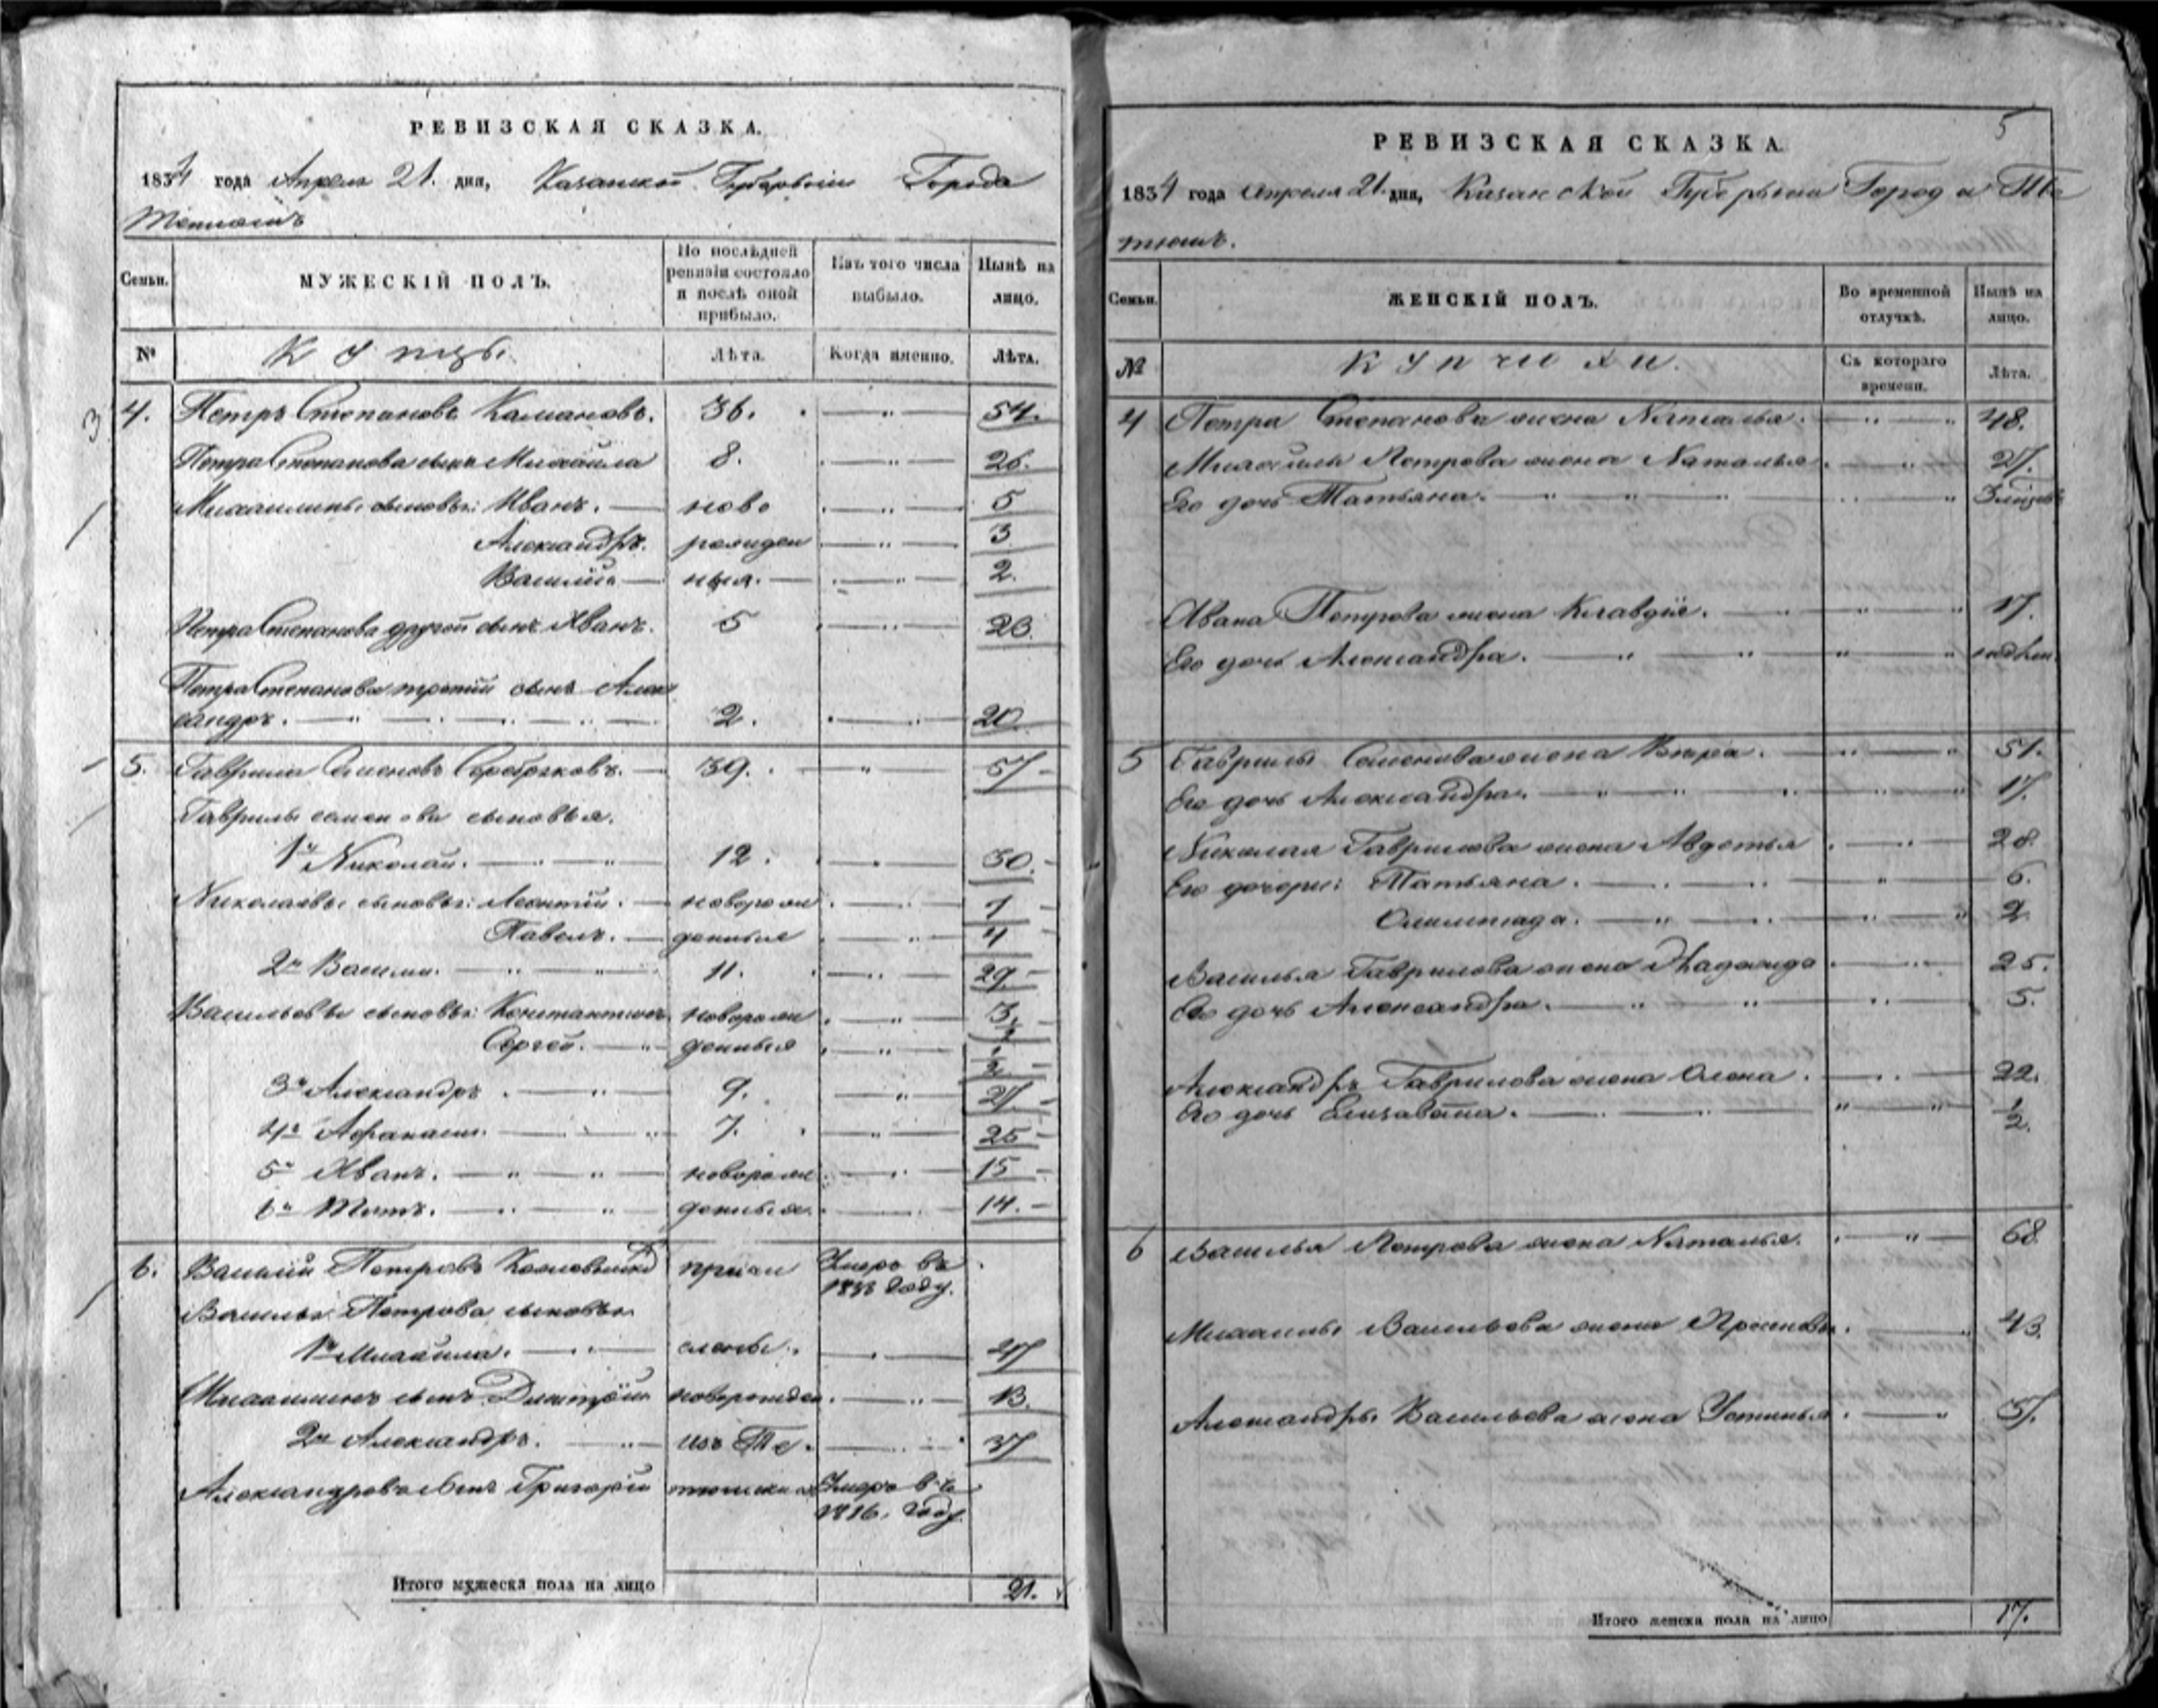 РЕВИЗСКАЯ СКАЗКА.
1834 года Апреля 21. дня, Казанской Губернiи Города
Тетюшъ
Семьи. МУЖЕСКIЙ ПОЛЪ. По послѣдней ревизiи состояло и послѣ оной прибыло. Изъ того числа выбыло. Нынѣ на лицо.
№ Купцы. Лѣта. Когда именно. Лѣта.
3
4. Петръ Степановъ Калмановъ. 36. 54.
Петра Степанова сынъ Михайла 8. 26.
Михаилины сыновья: Иванъ. ново 5
Александръ. рожден 3
Василiй ныя. 2.
Петра Степанова другой сынъ Иванъ. 5 23.
Петра Степанова третiй сынъ Алек
сандръ. 2. 20
5. Гаврила Семеновъ Серебряковъ. 39. 57
Гаврилы Семенова сыновья.
1й Николай. 12. 30.
Николаевы сыновья: Леонтiй. новорож 7
Павелъ. денныя 4
2й Василiй. 11. 29.
Васильевы сыновья: Константинъ новорож 3.
Сергей. денныя 1/2
3й Александръ. 9. 27.
4й Афанасiй. 7. 25
5й Иванъ. новорож 15
6й Титъ. денныя. 14.
6. Василiй Петровъ причи Умеръ въ
1833 году.
Василья Петрова сыновья
1й Михайла. слены. 47
Михаилинъ сынъ Дмитрiй новорожден 13.
2й Александръ. изъ Те 37
Александрова сынъ Григорiй Умеръ въ
1816. году
Итого мужеска пола на лицо 21.
5
РЕВИЗСКАЯ СКАЗКА.
1834 года Апреля 21. дня, Казанской Губернiи Города Те
тюшъ.
Семьи. ЖЕНСКIЙ ПОЛЪ. Во временной отлучкѣ. Нынѣ на лицо.
№ Купчихи. Съ котораго времени. Лѣта.
4 Петра Степанова жена Наталья. 48.
Михайлы Петрова жена Наталья. 27.
Его дочь Татьяна.
Ивана Петрова жена Клавдiя. 17.
Его дочь Александра.
5 Гаврилы Семенова жена Вера. 51.
Его дочь Александра. 17.
Николая Гаврилова жена Авдотья 28.
Его дочери: Татьяна. 6.
Олимпiада. 2.
Василья Гаврилова жена Надежда 25.
Его дочь Александра. 5.
Александръ Гаврилова жена Олена. 22.
Его дочь Елизавета. 1/2.
6 Василья Петрова жена Наталья. 68
Михайлы Васильева жена Прасковья. 43.
Александры Васильева жена Устинья. 37.
Итого женска пола на лицо 17.